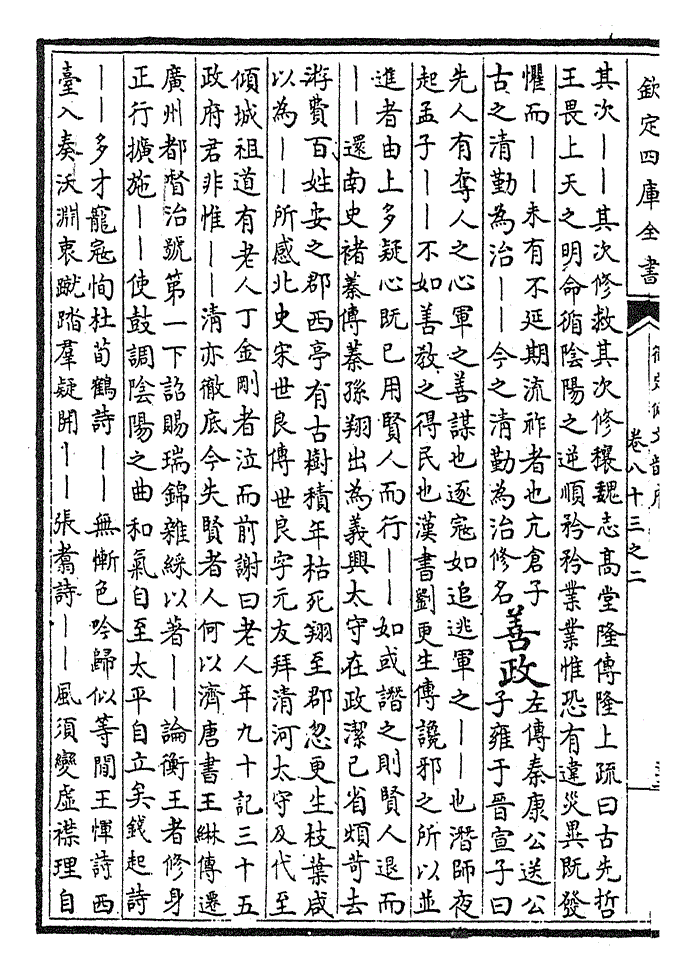 欽定四庫全書
卷八十三之二
其次——其次修救其次修穰魏志高堂隆傳隆上疏曰古先哲
王畏上天之明命循陰陽之逆順矜矜業業惟恐有違災異既發
懼而——未有不延期流祚者也亢倉子
古之清勤為治——今之清勤為治修名
善政
左傳秦康公送公
子雍于晉宣子曰
先人有奪人之心軍之善謀也逐寇如追逃軍之——也潛師夜
起孟子——不如善教之得民也漢書劉更生傳讒邪之所以並
進者由上多疑心既已用賢人而行——如或譖之則賢人退而
——還南史褚蓁傳蓁孫翔出為義興太守在政潔己省煩苛去
游費百姓安之郡西亭有古樹積年枯死翔至郡忽更生枝葉咸
以為——所感北史宋世良傳世良字元友拜清河太守及代至
傾城祖道有老人丁金剛者泣而前謝曰老人年九十記三十五
政府君非惟——清亦徹底今失賢者人何以濟唐書王綝傳遷
廣州都督治號第一下詔賜瑞錦雜綵以著——論衡王者修身
正行擴施——使鼓調陰陽之曲和氣自至太平自立矣錢起詩
——多才寵寇恂杜荀鶴詩——無慚色吟歸似等閒王惲詩西
臺入奏沃淵衷蹴踏羣疑開——張翥詩——風須變虛襟理自